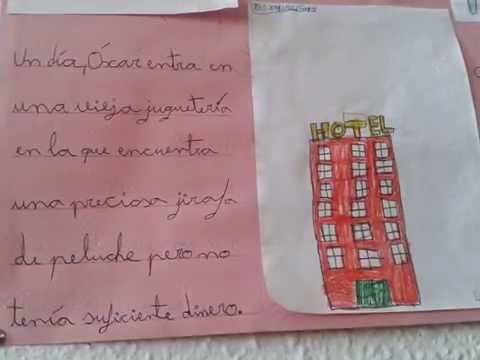 Un día, Óscar entra en
una vieja juguetería
en la que encuentra
una preciosa jirafa
de peluche pero no
tenía suficiente dinero.
HOTEL